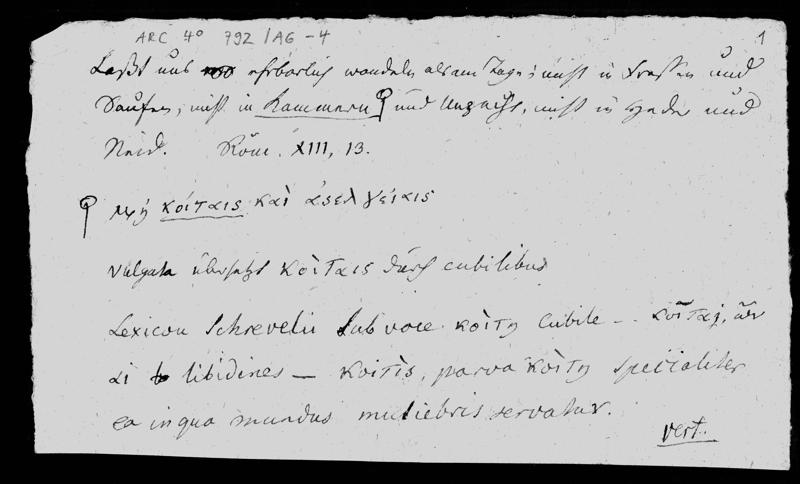 ARC 4° 792 / A6 - 4
1
Laßt uns ehrbarlich wandeln als am Tage; nicht in Fressen und
Saufen, nicht in Kammern und Unzucht, nicht in Hader und
Neid. Röm. XIII, 13.
μὴ κοίταις καὶ ἀσελγείαις
Vulgata übersetzt κοίταις durch cubilibus
Lexicon Schrevelii sub voce κοὶτη Cubile -- κοῖται,
αἱ libidines — κοιτὶς, parva κοὶτη specialiter
ea in qua mundus muliebris servatur.
vert.